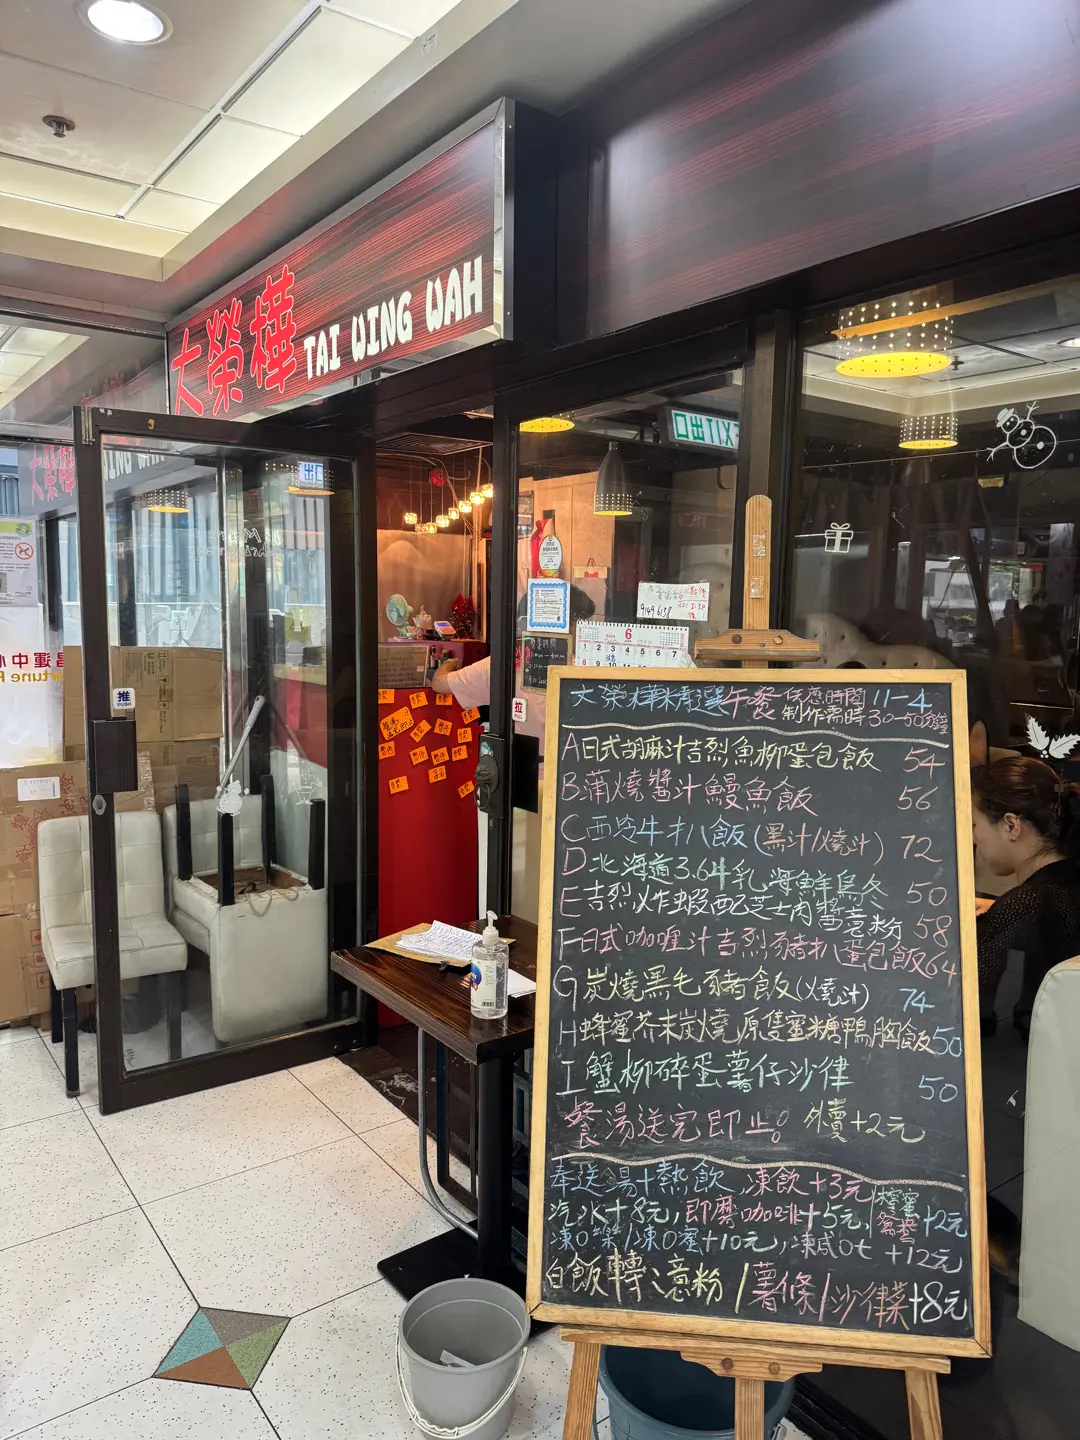 大榮樺 TAI WING WAH
出口 EXIT
出口
推 PUSH
拉 PULL
9149 6138
6
1 2 3 4 5 6 7
大榮樺精選午餐 供應時間 11-4
制作需時30-50分鐘
A日式胡麻汁吉烈魚柳蛋包飯 54
B蒲燒醬汁鰻魚飯 56
C西冷牛扒飯(黑汁/燒汁) 72
D北海道3.6牛乳海鮮烏冬 50
E吉烈炸蝦西芝士肉醬意粉 58
F日式咖喱汁吉烈豬扒蛋包飯 64
G炭燒黑毛豬飯(燒汁) 74
H蜂蜜芥末炭燒原隻蜜糖鴨胸飯 50
I蟹柳碎蛋薯仔沙律 50
餐湯送完即止。外賣+2元
奉送湯+熱飲,凍飲+3元
汽水+8元,即磨咖啡+5元, 檸蜜 鴛鴦 +2元
凍O樂/凍O蜜+10元,凍咸Ot +12元
白飯轉意粉/薯條/沙律菜+8元